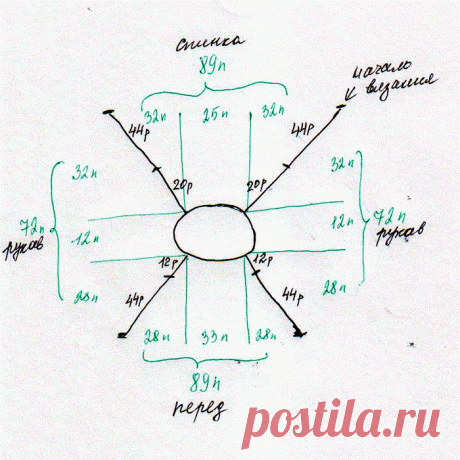 спинка
89п
начало
вязания
32п 25п 32п
44р 44р
20р 20р
32п 32п
72п 12п 12п 72п
рукав рукав
28п 28п
12р 12р
44р 44р
28п 33п 28п
89п
перед
postila.ru